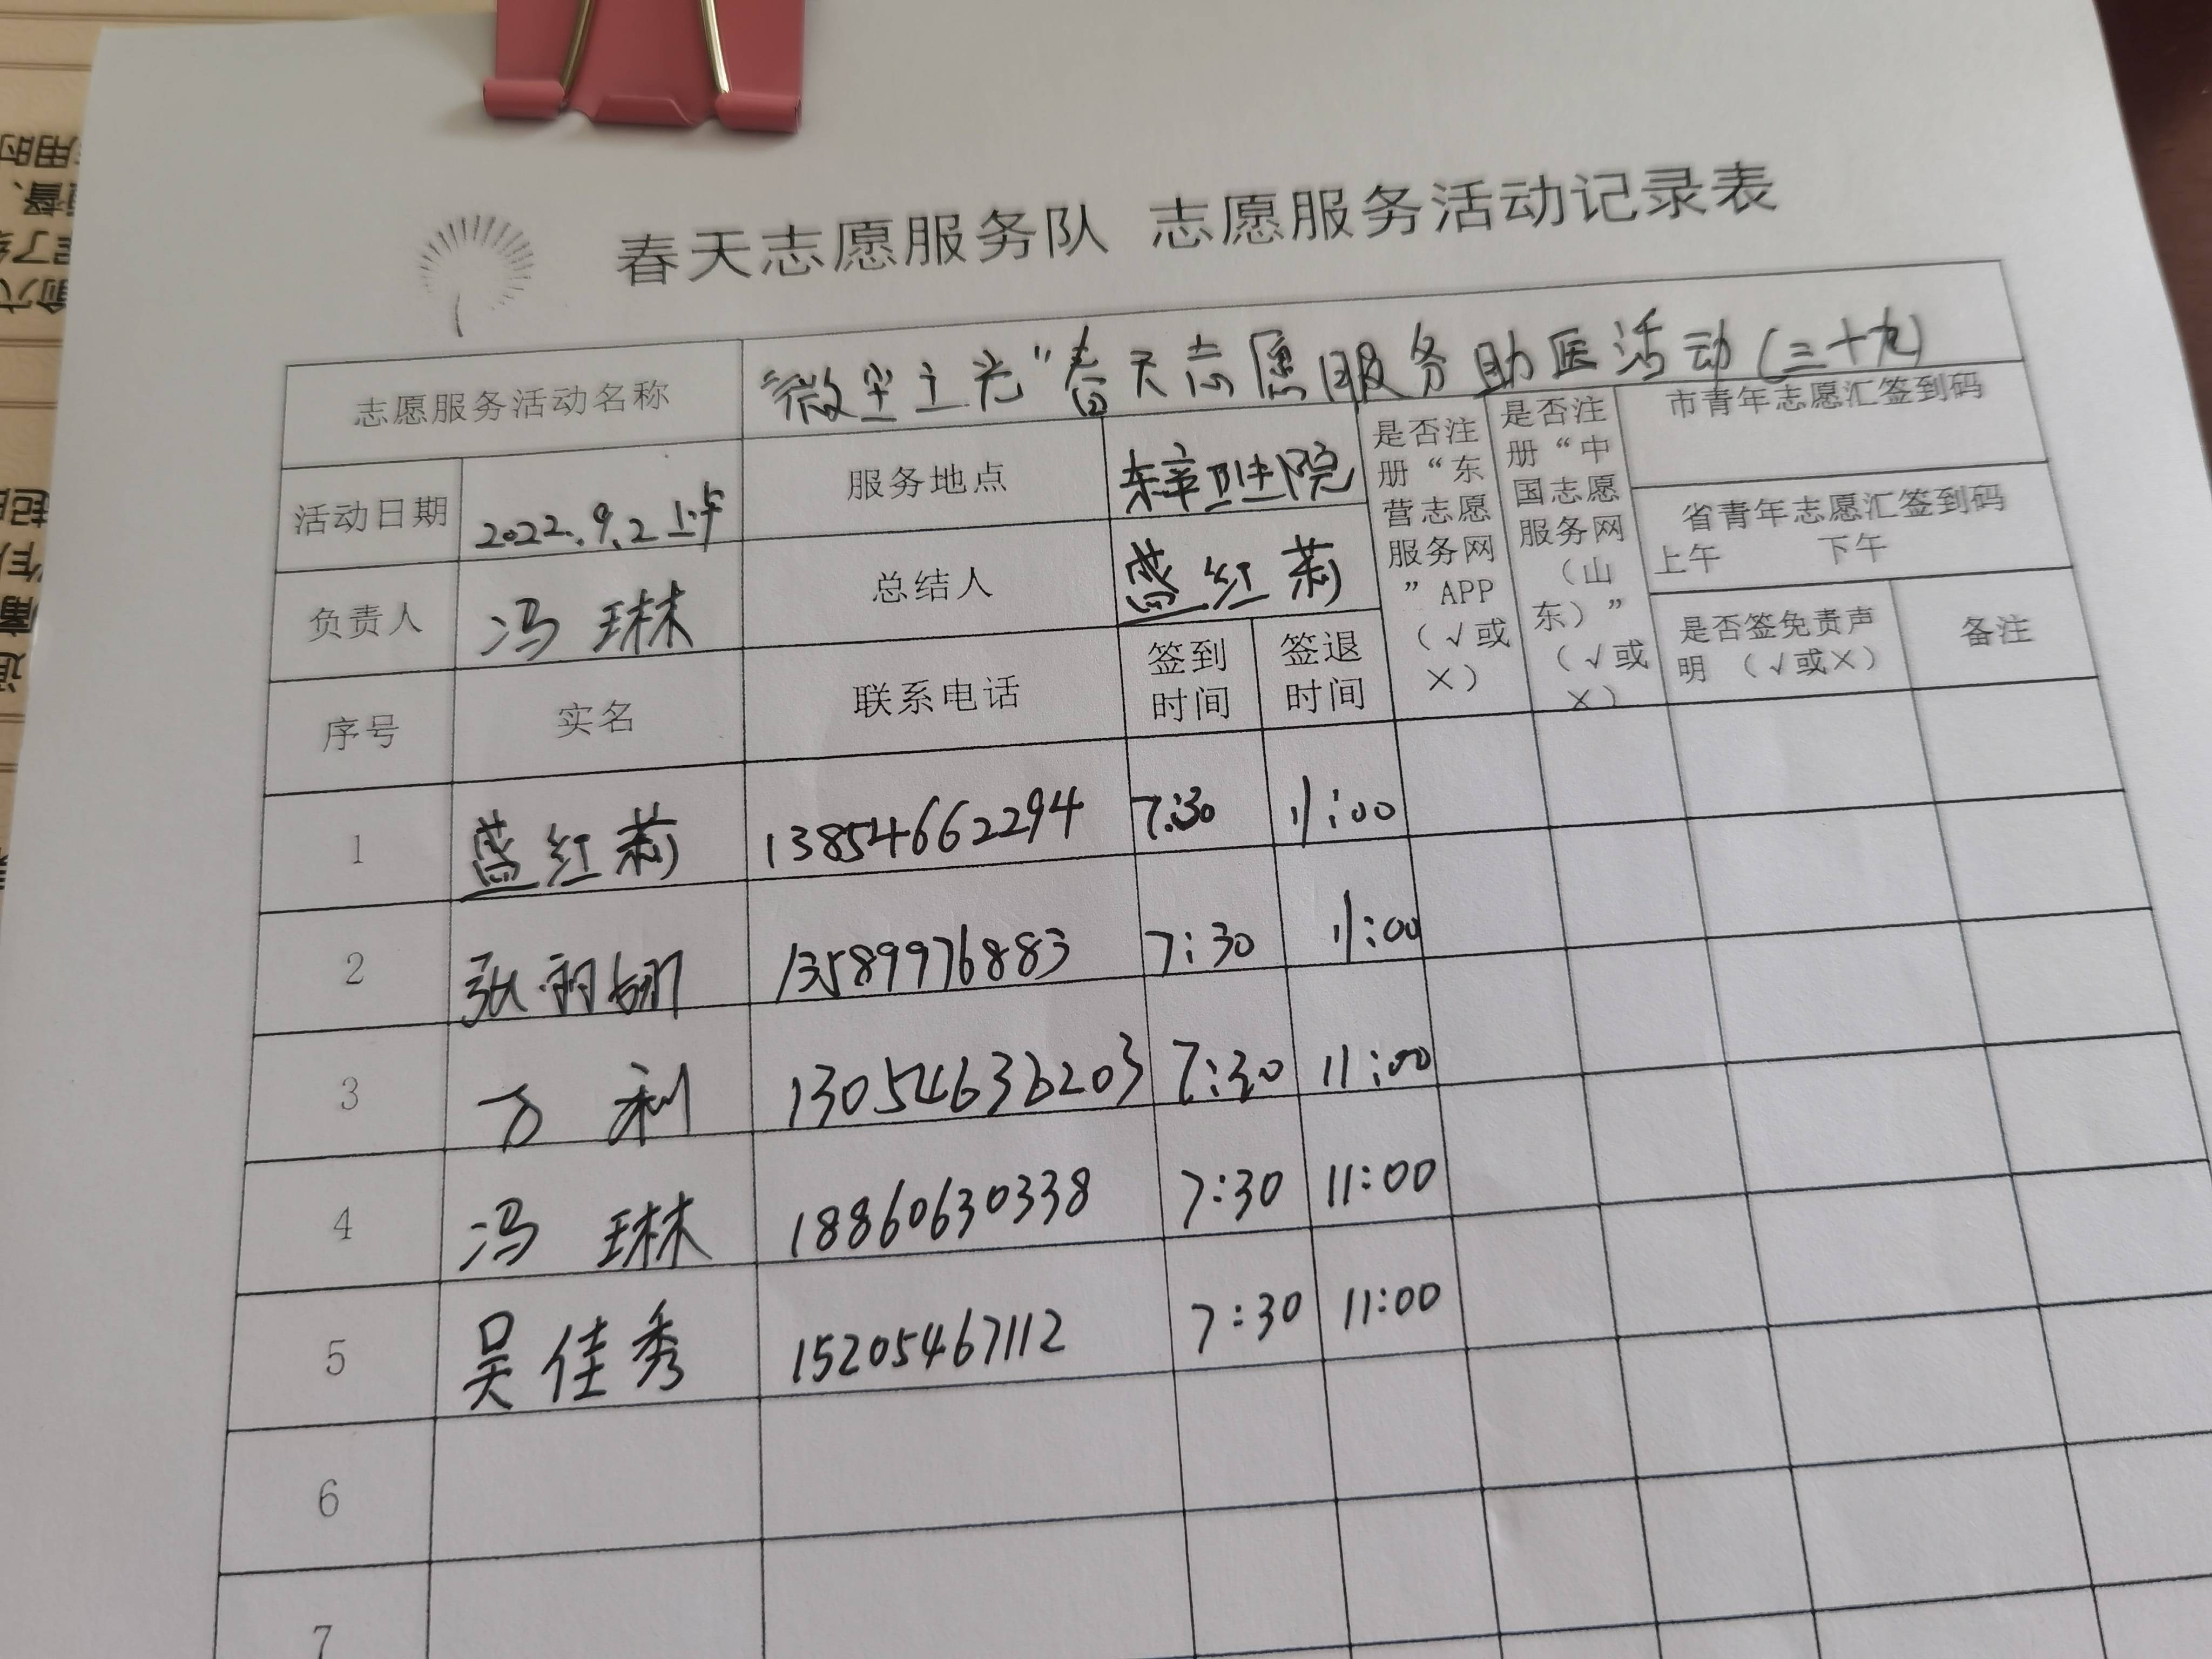 春天志愿服务队 志愿服务活动记录表
志愿服务活动名称 “微尘之光”春天志愿服务助医活动(三十九)
活动日期 2022.9.2上午 服务地点 辛章卫生院
负责人 冯琳 总结人 红莉
是否注册“东营志愿服务网”APP(√或×)
是否注册“中国志愿服务网(山东)”(√或×)
市青年志愿汇签到码
省青年志愿汇签到码
上午 下午
序号 实名 联系电话 签到时间 签退时间 是否签免责声明 (√或×) 备注
1 红莉 13854662294 7:30 11:00
2 张 13589976883 7:30 11:00
3 万利 13054636203 7:30 11:00
4 冯琳 18860630338 7:30 11:00
5 吴佳秀 15205467112 7:30 11:00
6
7